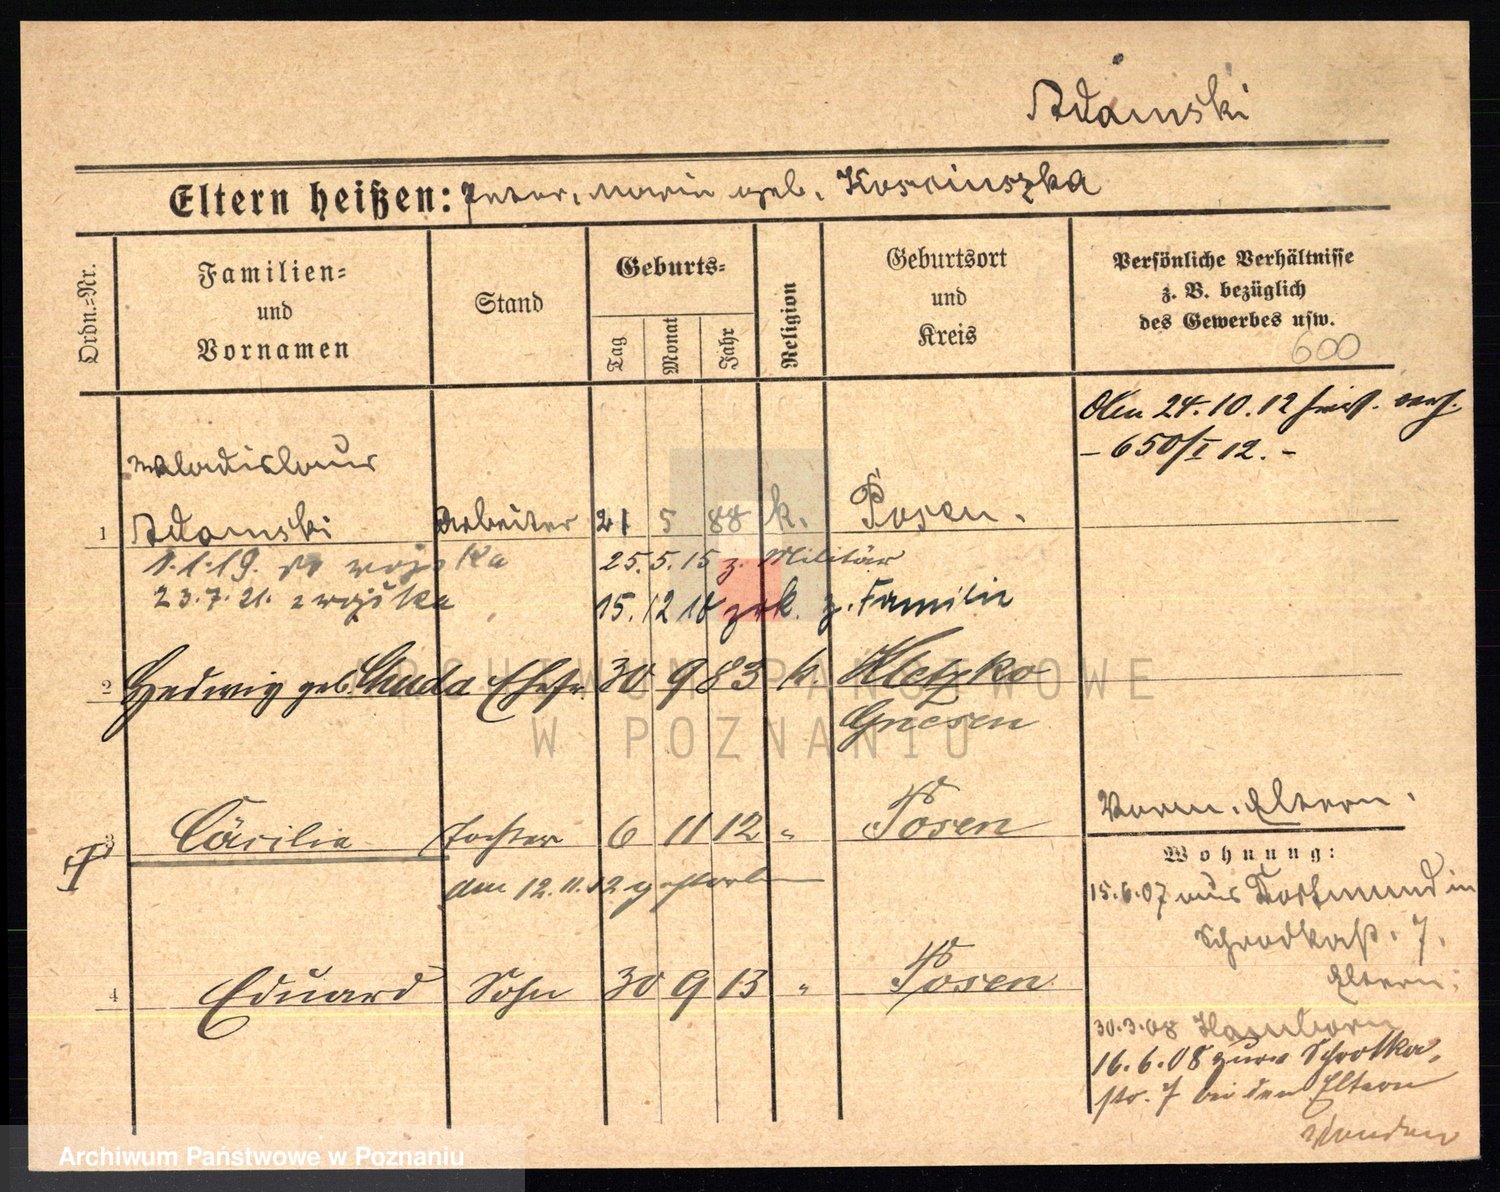 Adamski
Eltern heißen: Peter, Maria geb. Kosciuszka
Ordn.=Nr.
Familien=
und
Vornamen
Stand
Geburts=
Tag
Monat
Jahr
Religion
Geburtsort
und
Kreis
Persönliche Verhältnisse
z. B. bezüglich
des Gewerbes usw.
600
24.10.12
– 650/I 12. –
Wladislaus
1 Adamski Arbeiter 21 5 88 k. Posen.
1.1.19. do wojska 25.5.15 z. Militär
23.7.21. z wojska 15.12.18 zrk. z. Familie
2 Hedwig geb. Chuda Ehefr. 30 9 83 k Kletzko
Gnesen
3 Cäcilie Tochter 6 11 12 " Posen
den 12.11.12 gestorben
4 Eduard Sohn 30 9 13 " Posen
Vorm. Eltern.
Wohnung:
15.6.07 aus Dortmund in
Schrodkastr. 7.
Eltern.
30.3.08 Hamborn
16.6.08 zurü Schrotka-
str. 7 bei den Eltern
ARCHIWUM PAŃSTWOWE
W POZNANIU
Archiwum Państwowe w Poznaniu